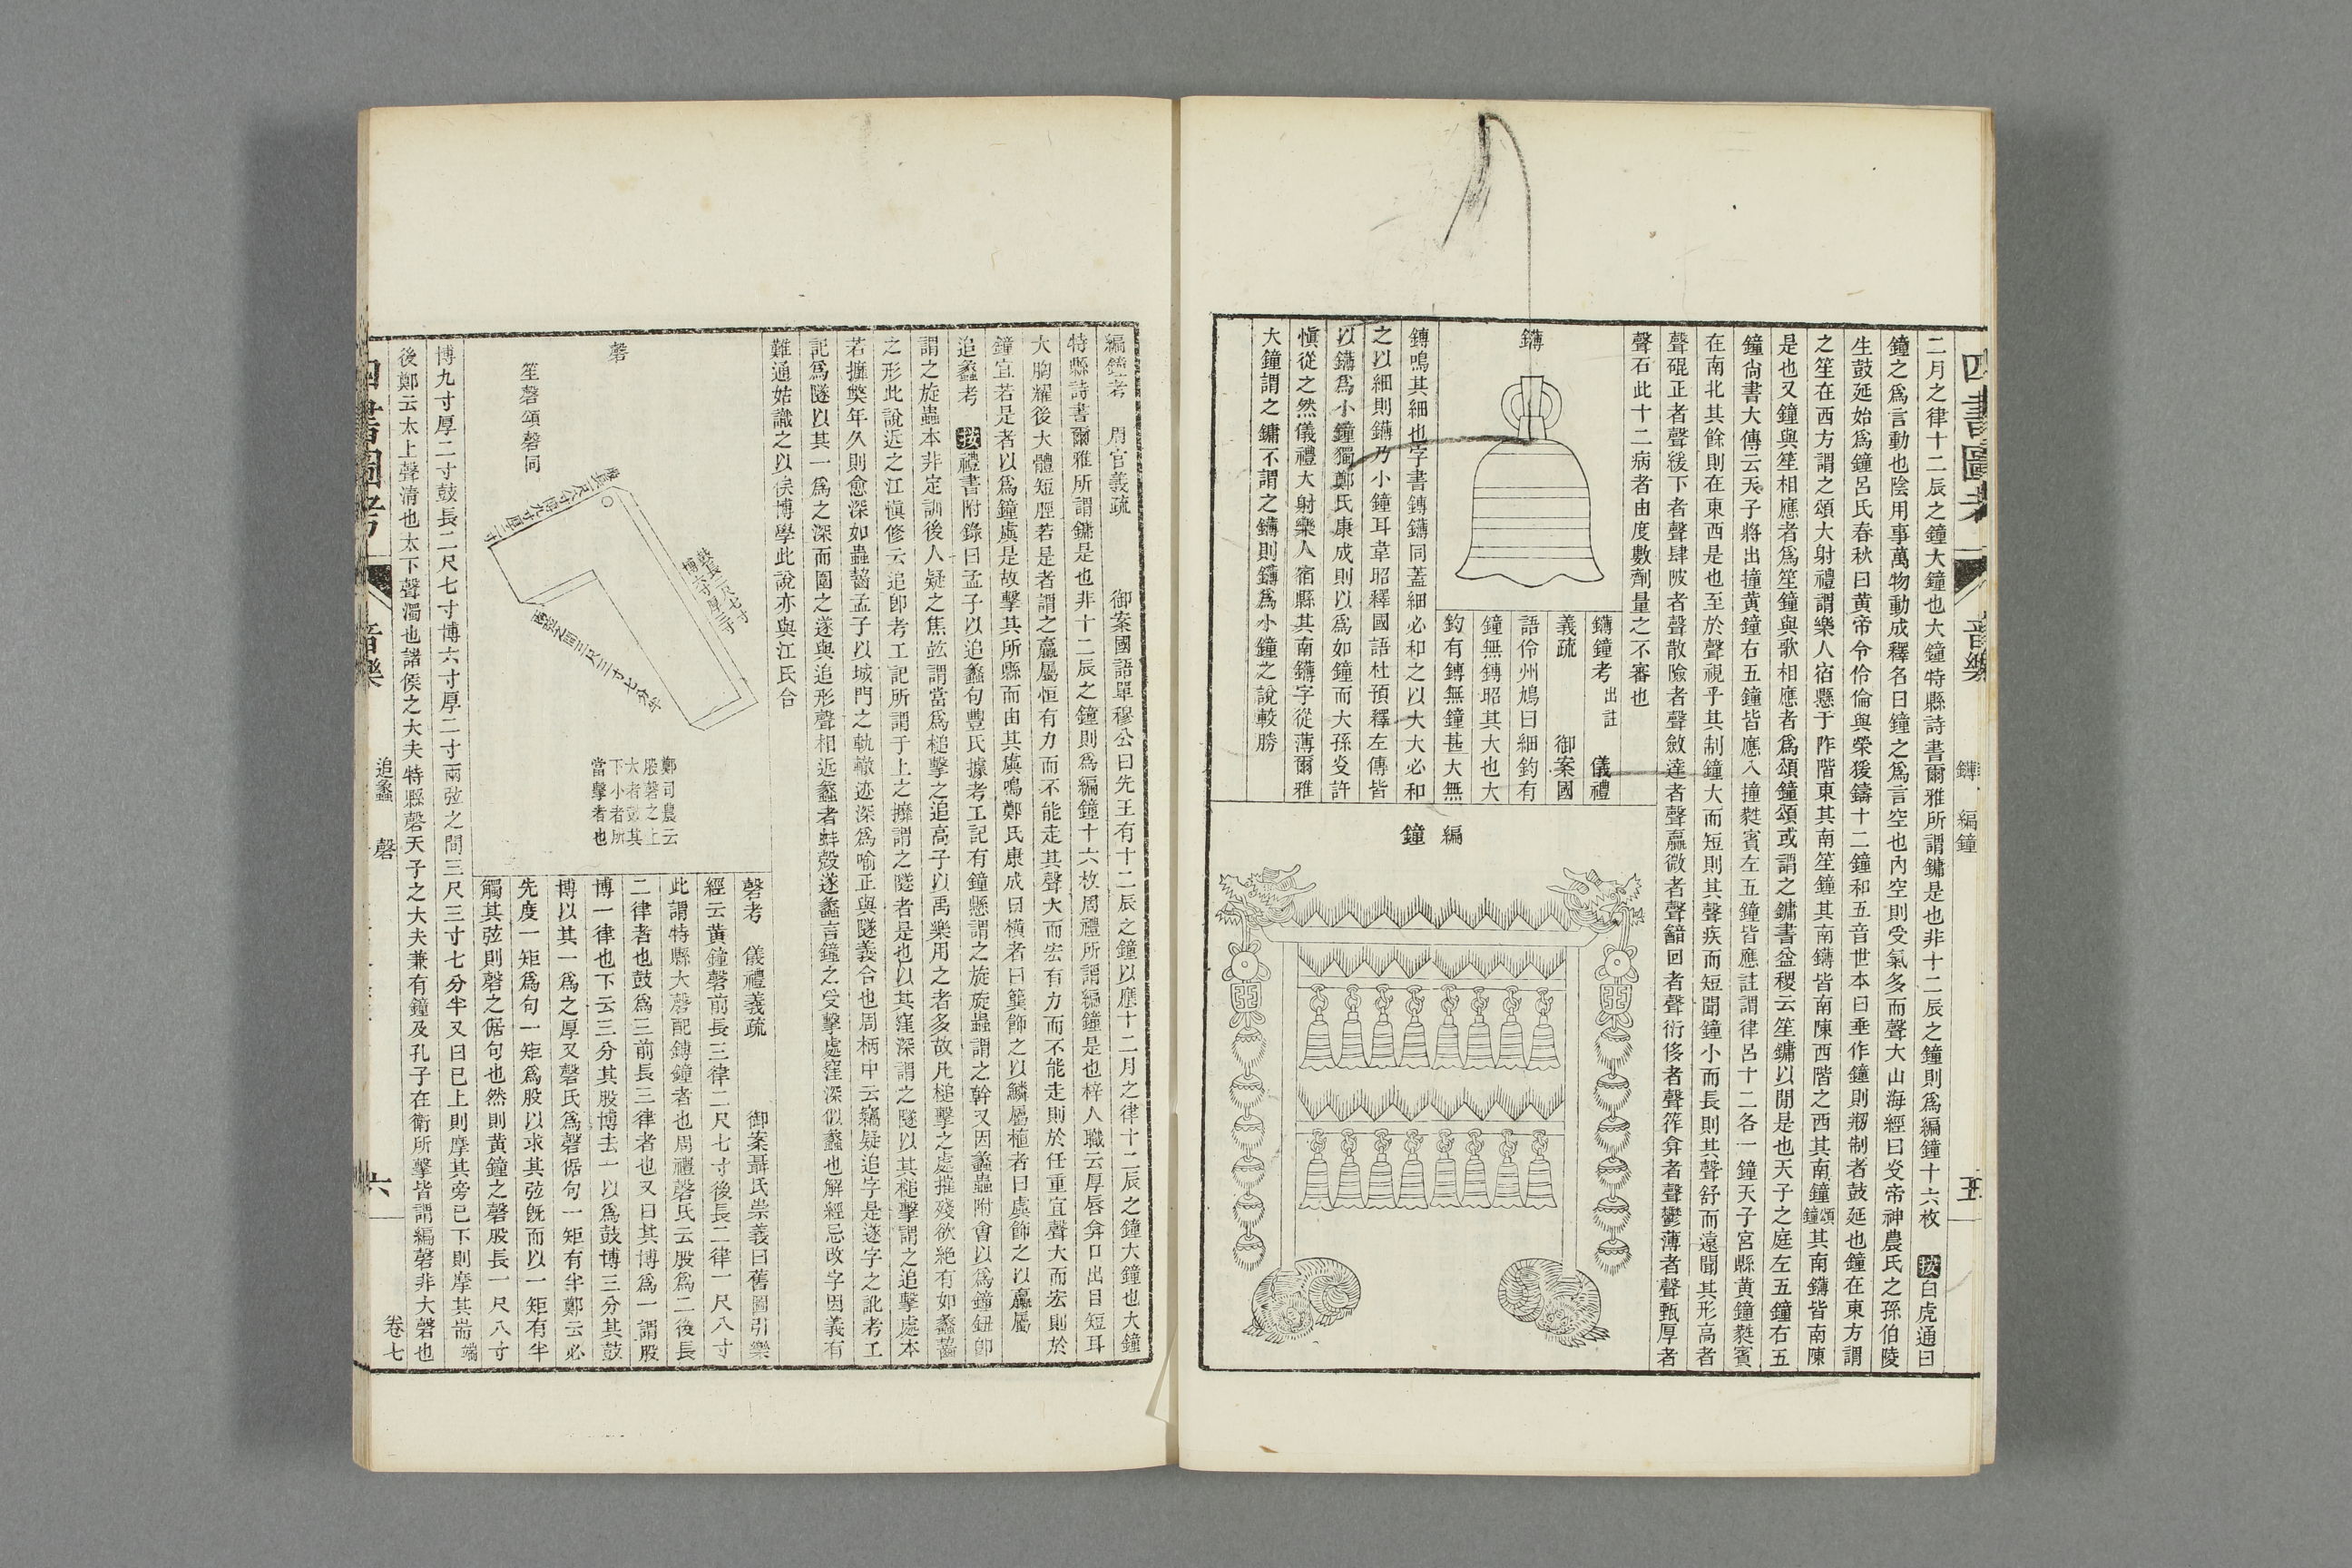 四書圖考
音樂
鏄
編鐘
五
二月之律十二辰之鐘大鐘也大鐘特縣詩書爾雅所謂鏞是也非十二辰之鐘則爲編鐘十六枚 按白虎通曰
鐘之爲言動也陰用事萬物動成釋名曰鐘之爲言空也內空則受氣多而聲大山海經曰炎帝神農氏之孫伯陵
生鼓延始爲鐘呂氏春秋曰黃帝令伶倫與榮猨鑄十二鐘和五音世本曰垂作鐘則剏制者鼓延也鐘在東方謂
之笙在西方謂之頌大射禮謂樂人宿懸于阼階東其南笙鐘其南鑮皆南陳西階之西其南鐘頌鐘其南鑮皆南陳
是也又鐘與笙相應者爲笙鐘與歌相應者爲頌鐘頌或謂之鏞書益稷云笙鏞以閒是也天子之庭左五鐘右五
鐘尙書大傳云天子將出撞黃鐘右五鐘皆應入撞蕤賓左五鐘皆應註謂律呂十二各一鐘天子宮縣黃鐘蕤賓
在南北其餘則在東西是也至於聲視乎其制鐘大而短則其聲疾而短聞鐘小而長則其聲舒而遠聞其形高者
聲硍正者聲緩下者聲肆陂者聲散險者聲斂達者聲贏微者聲韽回者聲衍侈者聲筰弇者聲鬱薄者聲甄厚者
聲石此十二病者由度數劑量之不審也
鑮
鑮鐘考 出註 儀禮
義疏 御案國
語伶州鳩曰細鈞有
鐘無鏄昭其大也大
鈞有鏄無鐘甚大無
鏄鳴其細也字書鏄鑮同蓋細必和之以大大必和
之以細則鑮乃小鐘耳韋昭釋國語杜預釋左傳皆
以鑮爲小鐘獨鄭氏康成則以爲如鐘而大孫炎許
愼從之然儀禮大射樂人宿縣其南鑮字從薄爾雅
大鐘謂之鏞不謂之鑮則鑮爲小鐘之說較勝
編
鐘
編鐘考 周官義疏 御案國語單穆公曰先王有十二辰之鐘以應十二月之律十二辰之鐘大鐘也大鐘
特縣詩書爾雅所謂鏞是也非十二辰之鐘則爲編鐘十六枚周禮所謂編鐘是也梓人職云厚唇弇口出目短耳
大胸耀後大體短脰若是者謂之臝屬恒有力而不能走其聲大而宏有力而不能走則於任重宜聲大而宏則於
鐘宜若是者以爲鐘虡是故擊其所縣而由其虡鳴鄭氏康成曰橫者曰簨飾之以鱗屬植者曰虡飾之以臝屬
追蠡考 按禮書附錄曰孟子以追蠡句豐氏據考工記有鐘懸謂之旋旋蟲謂之幹又因蠡蟲附會以爲鐘鈕卽
謂之旋蟲本非定訓後人疑之焦竑謂當爲槌擊之追高子以禹樂用之者多故凡槌擊之處摧殘欲絶有如蠡齧
之形此說近之江愼修云追卽考工記所謂于上之攠謂之隧者是也以其窪深謂之隧以其槌擊謂之追擊處本
若攠獘年久則愈深如蟲齧孟子以城門之軌轍迹深爲喻正與隧義合也周柄中云竊疑追字是遂字之訛考工
記爲隧以其一爲之深而圜之遂與追形聲相近蠡者蚌殼遂蠡言鐘之受擊處窪深似蠡也解經忌改字因義有
難通姑識之以俟博學此說亦與江氏合
磬
笙磬頌磬同
股長一尺八寸博九寸厚二寸
鼓長二尺七寸
博六寸厚二寸
兩弦之閒三尺三寸七分半
鄭司農云
股磬之上
大者鼓其
下小者所
當擊者也
磬考 儀禮義疏 御案聶氏崇義曰舊圖引樂
經云黃鐘磬前長三律二尺七寸後長二律一尺八寸
此謂特縣大磬配鏄鐘者也周禮磬氏云股爲二後長
二律者也鼓爲三前長三律者也又曰其博爲一謂股
博一律也下云三分其股博去一以爲鼓博三分其鼓
博以其一爲之厚又磬氏爲磬倨句一矩有半鄭云必
先度一矩爲句一矩爲股以求其弦旣而以一矩有半
觸其弦則磬之倨句也然則黃鐘之磬股長一尺八寸
博九寸厚二寸鼓長二尺七寸博六寸厚二寸兩弦之間三尺三寸七分半又曰已上則摩其旁已下則摩其耑端
後鄭云太上聲清也太下聲濁也諸侯之大夫特縣磬天子之大夫兼有鐘及孔子在衛所擊皆謂編磬非大磬也
四書圖考
音樂
追蠡
磬
六
卷七